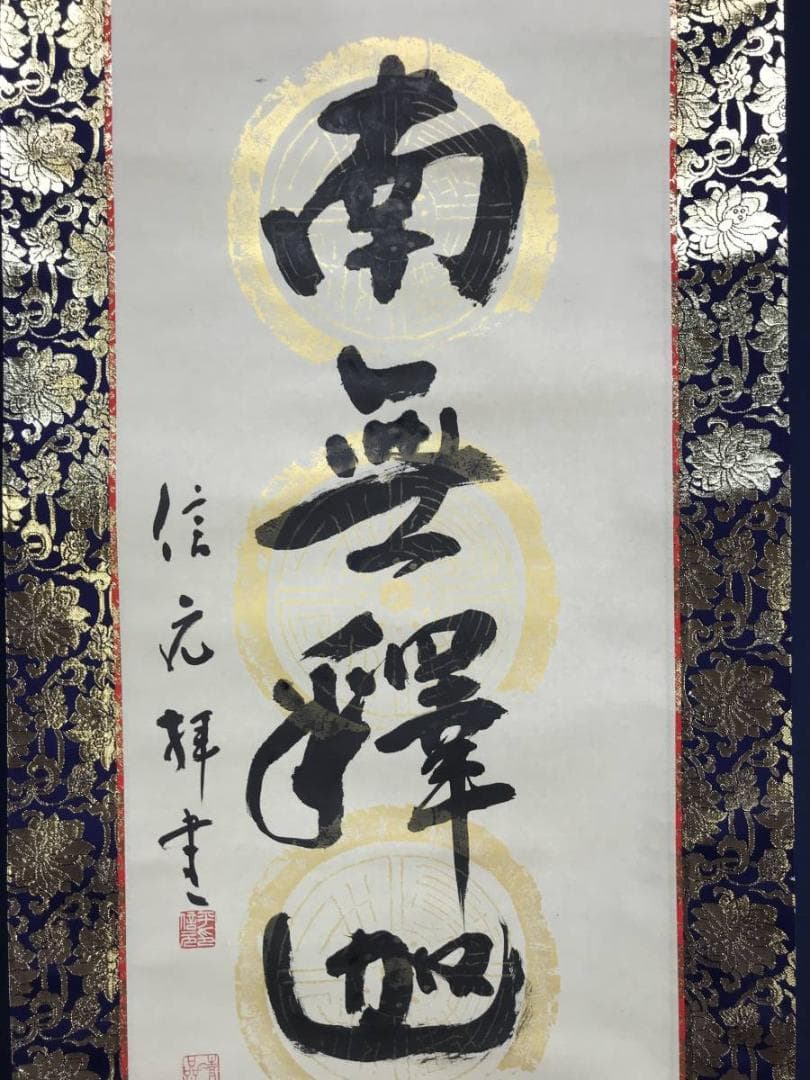 南無釋迦
信元拝書